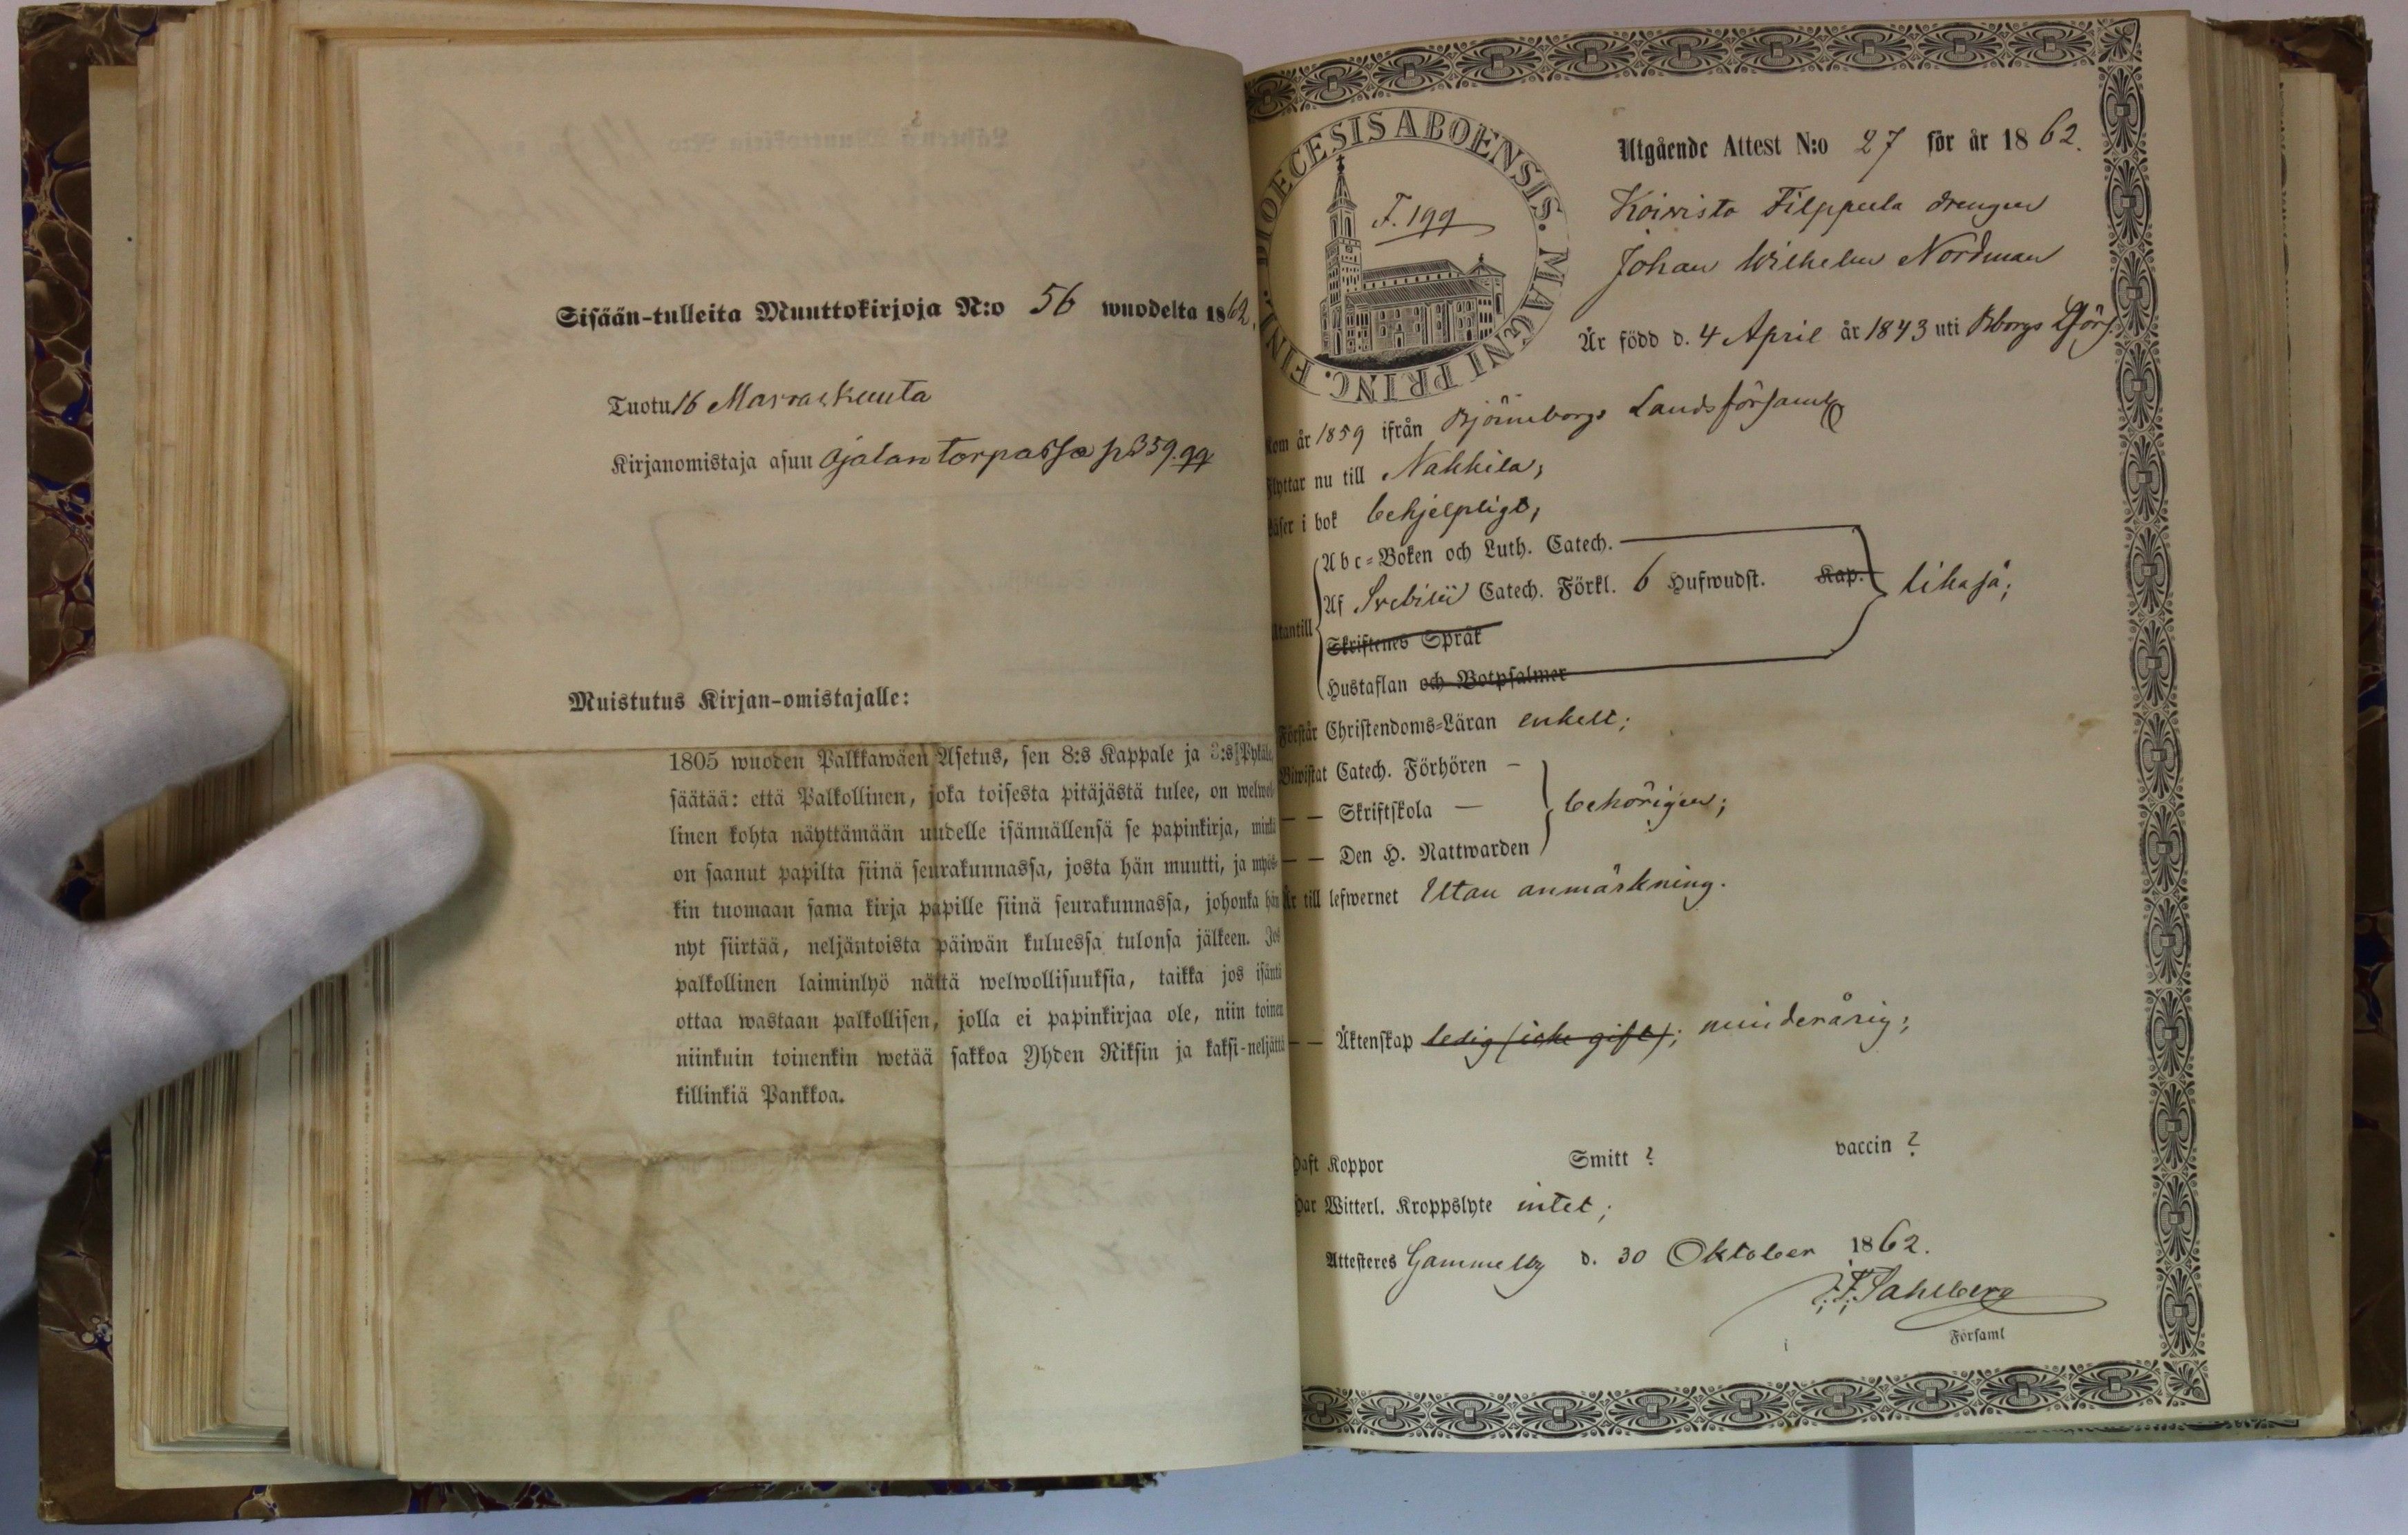 Sisään-tulleita Muuttokirjoja N:o 56 wuodelta 1862.
Tuotu 16 Marraskuuta
Kirjanomistaja asuu Ojalan torpassa p 359.
Muistutus Kirjan-omistajalle:
1805 wuoden Palkkawäen Asetus, sen 8:s Kappale ja 3:s Pykälä,
säätää: että Palkollinen, joka toisesta pitäjästä tulee, on welwol-
linen kohta näyttämään uudelle isännällensä se papinkirja, minkä
on saanut papilta siinä seurakunnassa, josta hän muutti, ja myös-
kin tuomaan sama kirja papille siinä seurakunnassa, johonka hän
nyt siirtää, neljäntoista päiwän kuluessa tulonsa jälkeen. Jos
palkollinen laiminlyö näitä welwollisuuksia, taikka jos isäntä
ottaa wastaan palkollisen, jolla ei papinkirjaa ole, niin toinen
niinkuin toinenkin wetää sakkoa Yhden Riksin ja kaksi-neljättä
killinkiä Pankkoa.
DIOECESIS ABOENSIS. MAGNI PRINC. FINL.
F. 199
Utgående Attest N:o 27 för år 1862.
Koivisto Filppula drengen
Johan Wilhelm Nordman
Är född d. 4 April år 1843 uti Bborgs Lförs.
kom år 1859 ifrån Björneborgs Landsförsaml
flyttar nu till Nakkila;
läser i bok behjelpligt;
Utantill
Abc-Boken och Luth. Catech.
Af Svebilii Catech. Förkl. 6 Hufwudst. Kap. likaså;
Skriftenes Språk
Hustaflan och Botpsalmer
Förstår Christendoms-Läran enkelt;
Biwistat Catech. Förhören —
— — Skriftskola — behörigen;
— — Den H. Nattwarden
Är till lefwernet Utan anmärkning.
— — Äktenskap ledig (icke gift); minderårig;
Haft Koppor Smitt ? vaccin ?
Har Witterl. Kroppslyte intet;
Attesteres Gammelby d. 30 Oktober 1862.
J. F. Sahlberg
i Församl